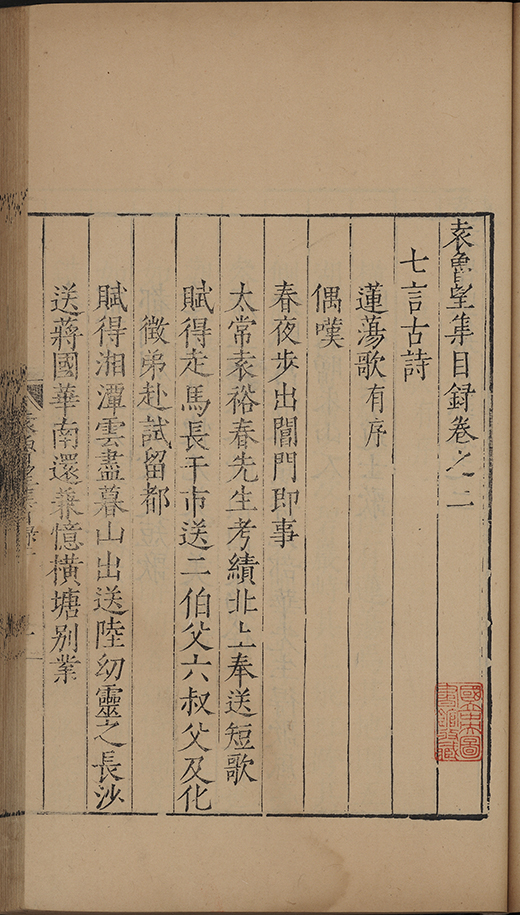 袁魯望集目録卷之二
七言古詩
蓮蕩歌有序
偶嘆
春夜步出閶門即事
太常袁裕春先生考績北上奉送短歌
賦得走馬長干市送二伯父六叔父及化
徵弟赴試留都
賦得湘潭雲盡暮山出送陸幼靈之長沙
送蔣國華南還兼憶橫塘别業
國立中央圖書館收藏